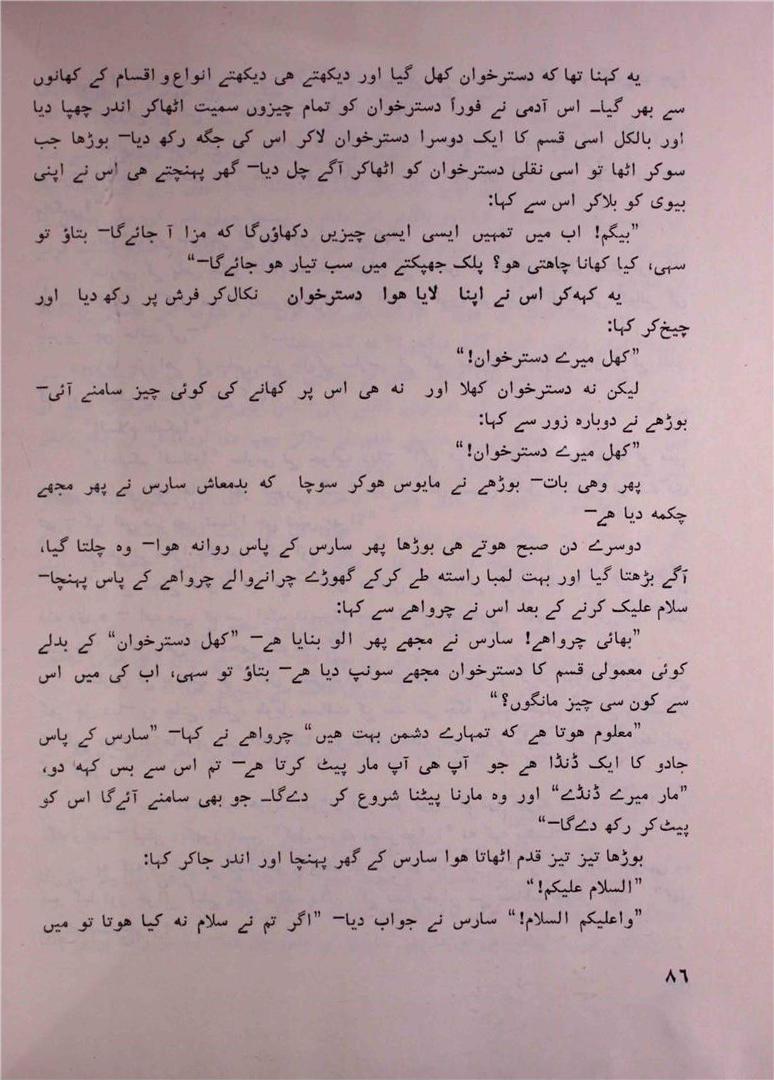 یه کہنا تھا که دسترخوان کھل گیا اور دیکھتے هی دیکھتے انواع و اقسام کے کھانوں
سے بھر گیا۔ اس آدمی نے فوراً دسترخوان کو تمام چیزوں سمیت اٹھاکر اندر چھپا دیا
اور بالکل اسی قسم کا ایک دوسرا دسترخوان لاکر اس کی جگه رکھ دیا– بوڑھا جب
سوکر اٹھا تو اسی نقلی دسترخوان کو اٹھاکر آگے چل دیا– گھر پہنچتے هی اس نے اپنی
بیوی کو بلاکر اس سے کہا:
”بیگم! اب میں تمہیں ایسی ایسی چیزیں دکھاؤں‌گا که مزا آ جائے‌گا– بتاؤ تو
سہی، کیا کھانا چاهتی هو؟ پلک جھپکتے میں سب تیار هو جائے‌گا–“
یه کہه‌کر اس نے اپنا لایا هوا دسترخوان نکال‌کر فرش پر رکھ دیا اور
چیخ‌کر کہا:
”کھل میرے دسترخوان!“
لیکن نه دسترخوان کھلا اور نه هی اس پر کھانے کی کوئی چیز سامنے آئی–
بوڑھے نے دوباره زور سے کہا:
”کھل میرے دسترخوان!“
پھر وهی بات– بوڑھے نے مایوس هوکر سوچا که بدمعاش سارس نے پھر مجھے
چکمه دیا هے–
دوسرے دن صبح هوتے هی بوڑھا پھر سارس کے پاس روانه هوا– وه چلتا گیا،
آگے بڑھتا گیا اور بہت لمبا راسته طے کرکے گھوڑے چرانےوالے چرواهے کے پاس پہنچا–
سلام علیک کرنے کے بعد اس نے چرواهے سے کہا:
”بھائی چرواهے! سارس نے مجھے پھر الو بنایا هے– ”کھل دسترخوان“ کے بدلے
کوئی معمولی قسم کا دسترخوان مجھے سونپ دیا هے– بتاؤ تو سہی، اب کی میں اس
سے کون سی چیز مانگوں؟“
”معلوم هوتا هے که تمہارے دشمن بہت هیں“ چرواهے نے کہا– ”سارس کے پاس
جادو کا ایک ڈنڈا هے جو آپ هی آپ مار پیٹ کرتا هے– تم اس سے بس کہه دو،
”مار میرے ڈنڈے“ اور وه مارنا پیٹنا شروع کر دے‌گا۔ جو بھی سامنے آئے‌گا اس کو
پیٹ‌کر رکھ دے‌گا–“
بوڑھا تیز تیز قدم اٹھاتا هوا سارس کے گھر پہنچا اور اندر جاکر کہا:
”السلام علیکم!“
”واعلیکم السلام!“ سارس نے جواب دیا– ”اگر تم نے سلام نه کیا هوتا تو میں
۸۶